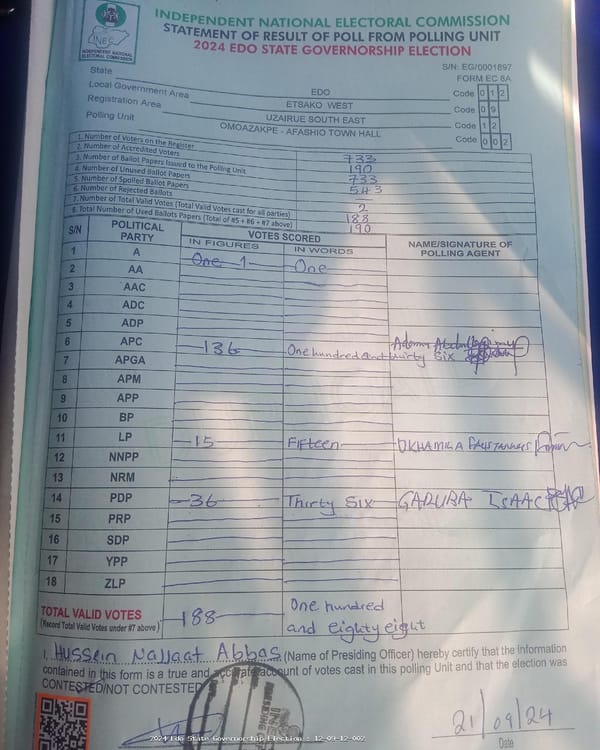 INEC
INDEPENDENT NATIONAL ELECTORAL COMMISSION
INDEPENDENT NATIONAL ELECTORAL COMMISSION
STATEMENT OF RESULT OF POLL FROM POLLING UNIT
2024 EDO STATE GOVERNORSHIP ELECTION
S/N: EG/0001897
FORM EC 8A
State EDO Code 0 1 2
Local Government Area ETSAKO WEST Code 0 9
Registration Area UZAIRUE SOUTH EAST Code 1 2
Polling Unit OMOAZAKPE - AFASHIO TOWN HALL Code 0 0 2
1. Number of Voters on the Register 733
2. Number of Accredited Voters 190
3. Number of Ballot Papers Issued to the Polling Unit 733
4. Number of Unused Ballot Papers 543
5. Number of Spoiled Ballot Papers
6. Number of Rejected Ballots 2
7. Number of Total Valid Votes (Total Valid Votes cast for all parties) 188
8. Total Number of Used Ballots Papers (Total of #5 + #6 + #7 above) 190
S/N POLITICAL PARTY VOTES SCORED NAME/SIGNATURE OF POLLING AGENT
IN FIGURES IN WORDS
1 A One 1 One
2 AA
3 AAC
4 ADC
5 ADP
6 APC 136 One hundred and thirty Six
7 APGA
8 APM
9 APP
10 BP
11 LP 15 Fifteen
12 NNPP
13 NRM
14 PDP 36 Thirty Six ISAAC
15 PRP
16 SDP
17 YPP
18 ZLP
TOTAL VALID VOTES 188 One hundred and eighty eight
(Record Total Valid Votes under #7 above)
I, Hussein Najjaat Abbas (Name of Presiding Officer) hereby certify that the information
contained in this form is a true and accurate account of votes cast in this polling Unit and that the election was
CONTESTED/NOT CONTESTED
21/09/24
Date
2024 Edo State Governorship Election : 12-09-12-002